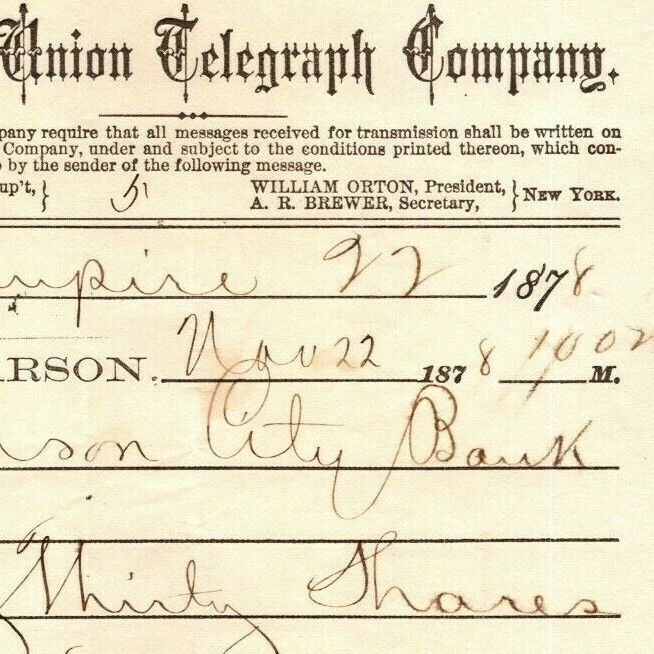 Union Telegraph Company.
pany require that all messages received for transmission shall be written on
Company, under and subject to the conditions printed thereon, which con-
by the sender of the following message.
up't, } 51 WILLIAM ORTON, President, } NEW YORK.
A. R. BREWER, Secretary,
mpire 22 1878
ARSON. Nov 22 1878 M.
rson City Bank
Thirty Shares